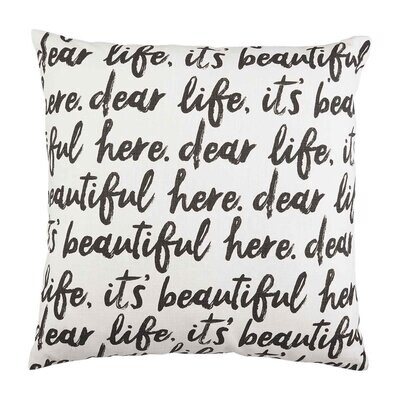 dear life, it's beautiful
here. dear life, it's beau
iful here. dear life, it
eautiful here. dear lif
it's beautiful here. dear
life, it's beautiful her
dear life. it's beautiful